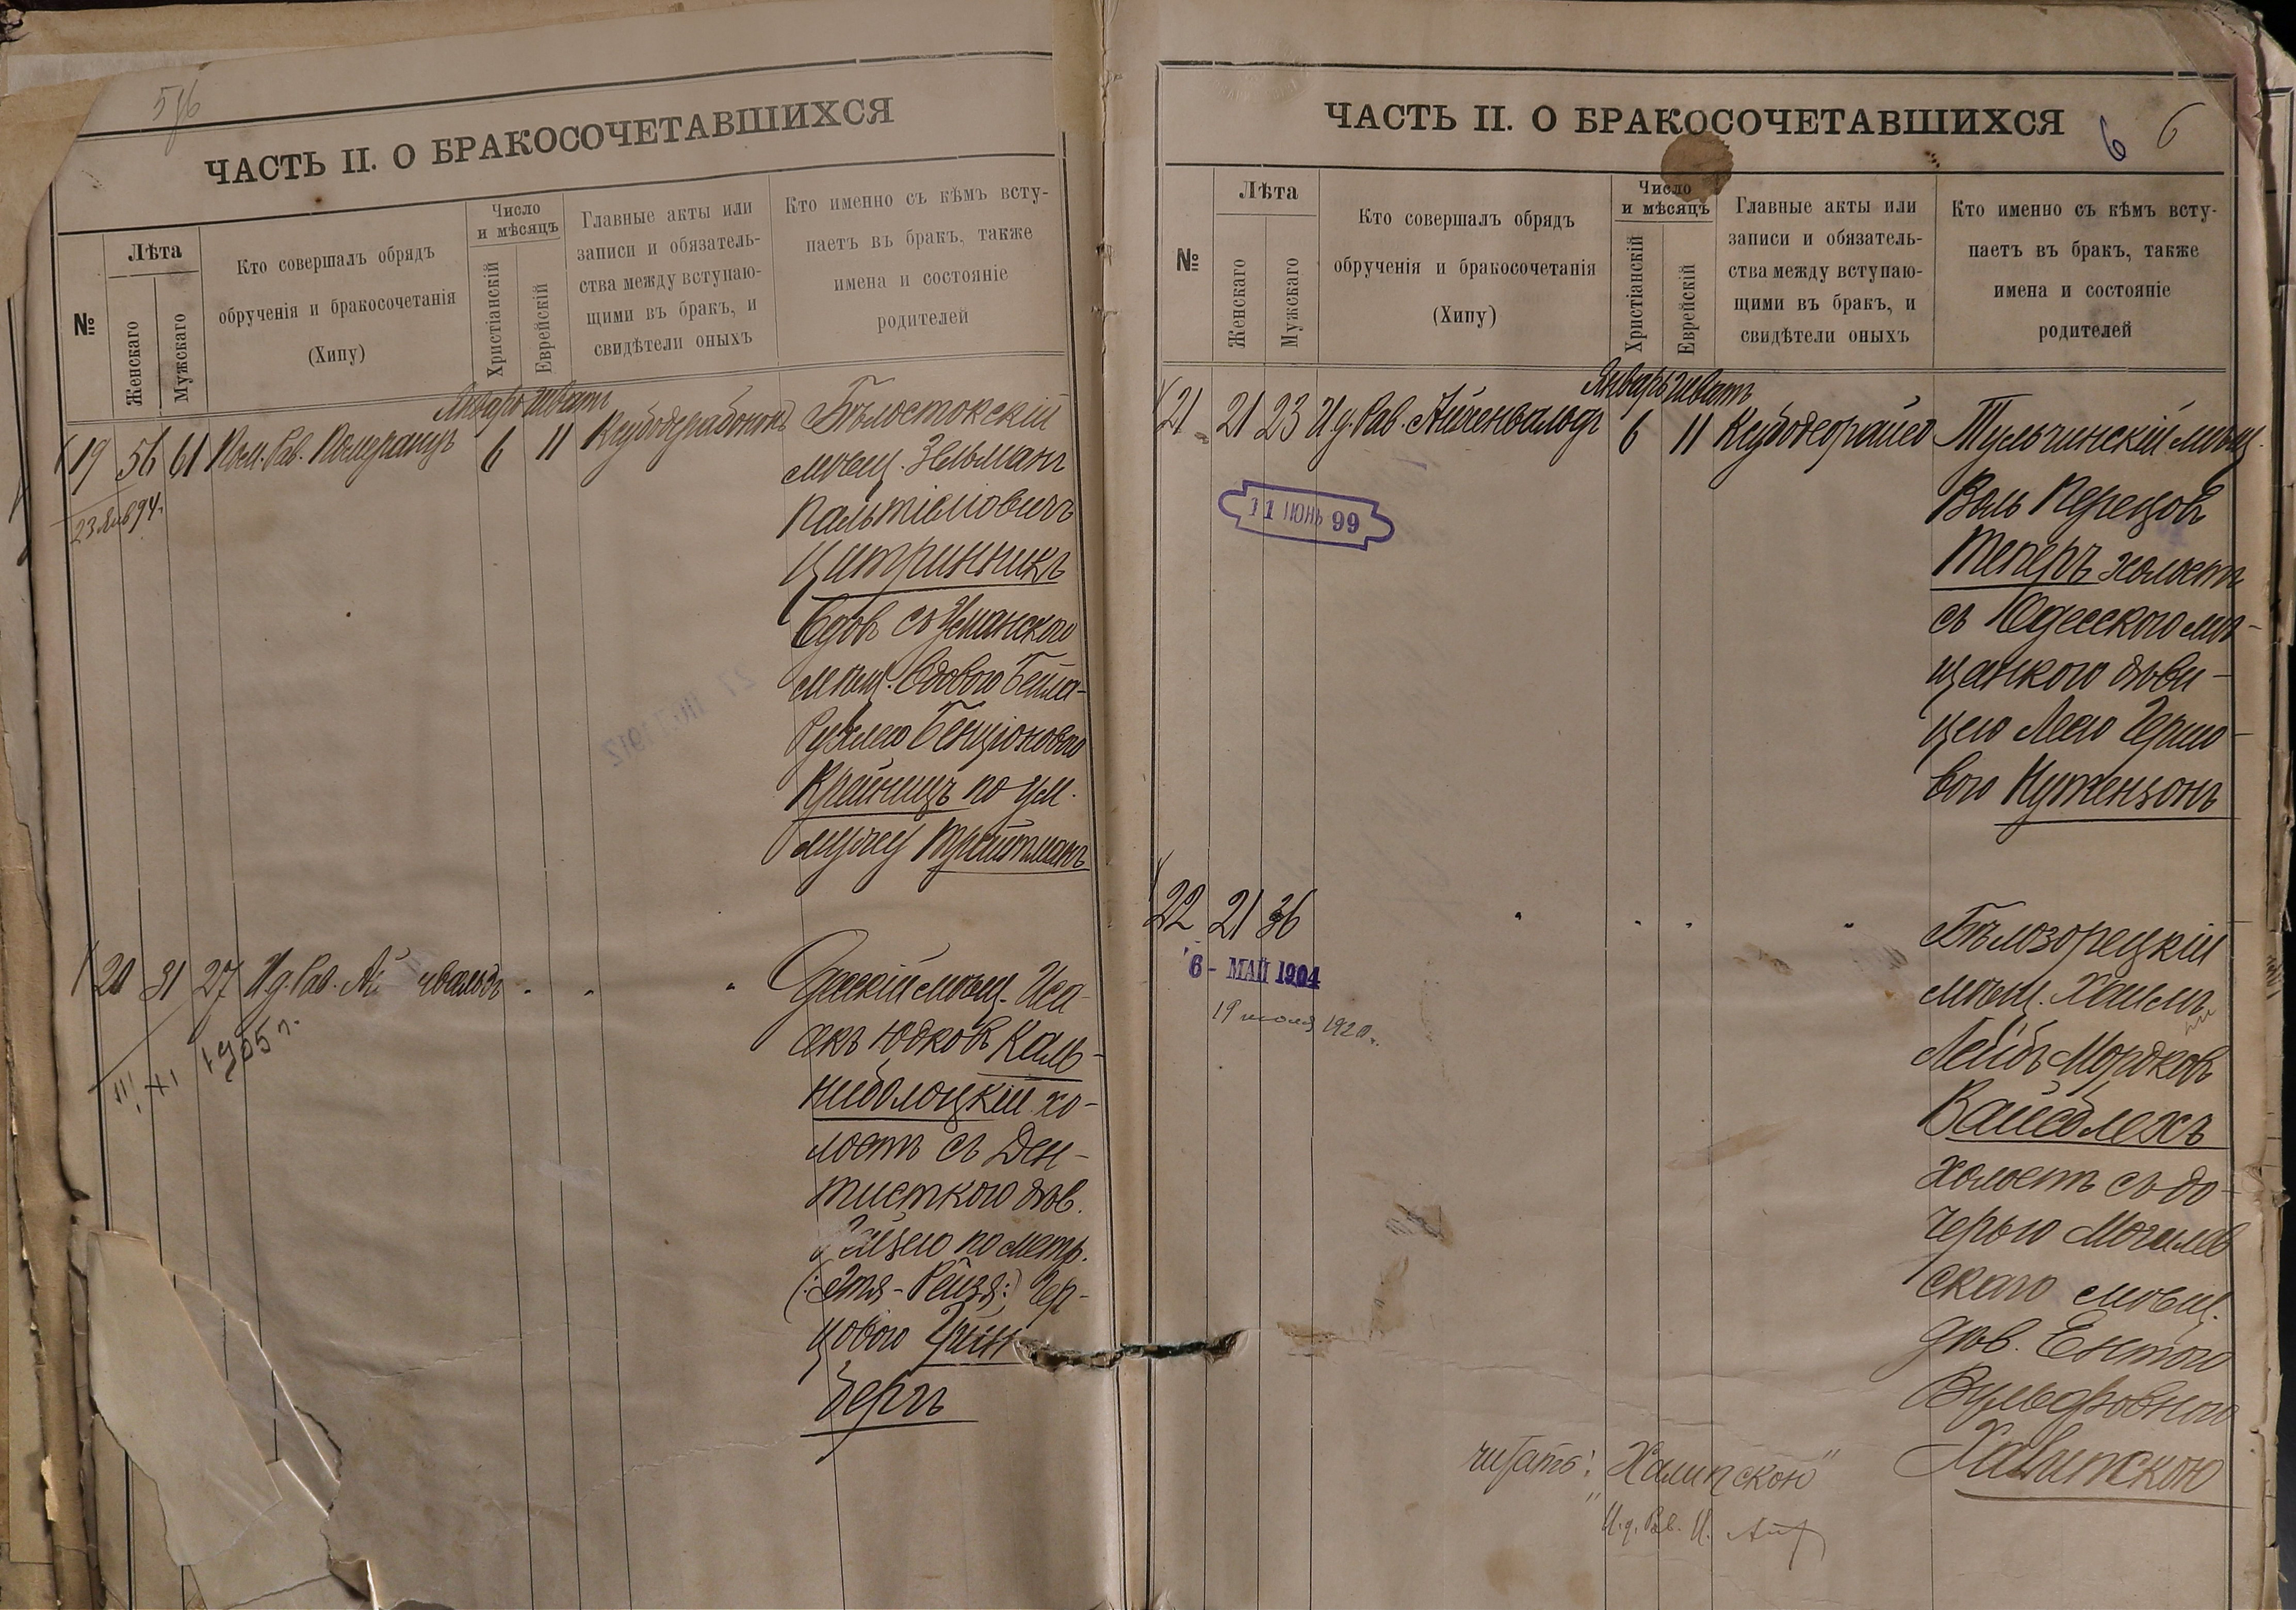 5/6
ЧАСТЬ II. О БРАКОСОЧЕТАВШИХСЯ
№
Лѣта
Женскаго
Мужскаго
Кто совершалъ обрядъ
обрученія и бракосочетанія
(Хипу)
Число
и мѣсяцъ
Христіанскій
Еврейскій
Главные акты или
записи и обязатель-
ства между вступаю-
щими въ бракъ, и
свидѣтели оныхъ
Кто именно съ кѣмъ всту-
паетъ въ бракъ, также
имена и состояніе
родителей
Январь Шватъ
19 56 61 Пом. Рав. Померанцъ 6 11 Бѣлостокскій
23 Янв 94.
мѣщ. Зельманъ
Пальтіеловичъ
Цитринникъ
вдов съ Уманскою
мѣщ. вдовою Бейла-
Рухлею Бенціоновою
Крейницъ по ум.
мужу Трейтманъ
20 31 27 И.д. Рав. Ай вальдъ " " " Одесскій мѣщ. Иса-
акъ Юдковъ Каль-
ниболоцкій хо-
лостъ съ Ден-
тисткою дѣв.
по метр.
(:Этя-Рейзя:) Гер-
цовою Грин
бергъ
III XI 1905 г.
ЧАСТЬ II. О БРАКОСОЧЕТАВШИХСЯ
6 6
№
Лѣта
Женскаго
Мужскаго
Кто совершалъ обрядъ
обрученія и бракосочетанія
(Хипу)
Число
и мѣсяцъ
Христіанскій
Еврейскій
Главные акты или
записи и обязатель-
ства между вступаю-
щими въ бракъ, и
свидѣтели оныхъ
Кто именно съ кѣмъ всту-
паетъ въ бракъ, также
имена и состояніе
родителей
Январь Шватъ
21 21 23 И.д. Рав. Айхенвальдъ 6 11 Тульчинскій мѣщ.
11 ІЮНЬ 99
Воль Перецов
Теперъ холостъ
съ Одесскою мѣ-
щанкою дѣви-
цею Леею Гершко-
вою Нутензонъ
22 21 36 " " " " Бѣлозорецкій
6 - МАЙ 1904
мѣщ. Хаимъ
19 июля 1920 г.
Лейбъ Мордков
Вайсблехъ
холостъ съ до-
черью Могилев
скаго мѣщ.
дѣв. Ентою
Вульфовною
Хавипскою
читать: "Халипскою"
И.д. Рав. И.